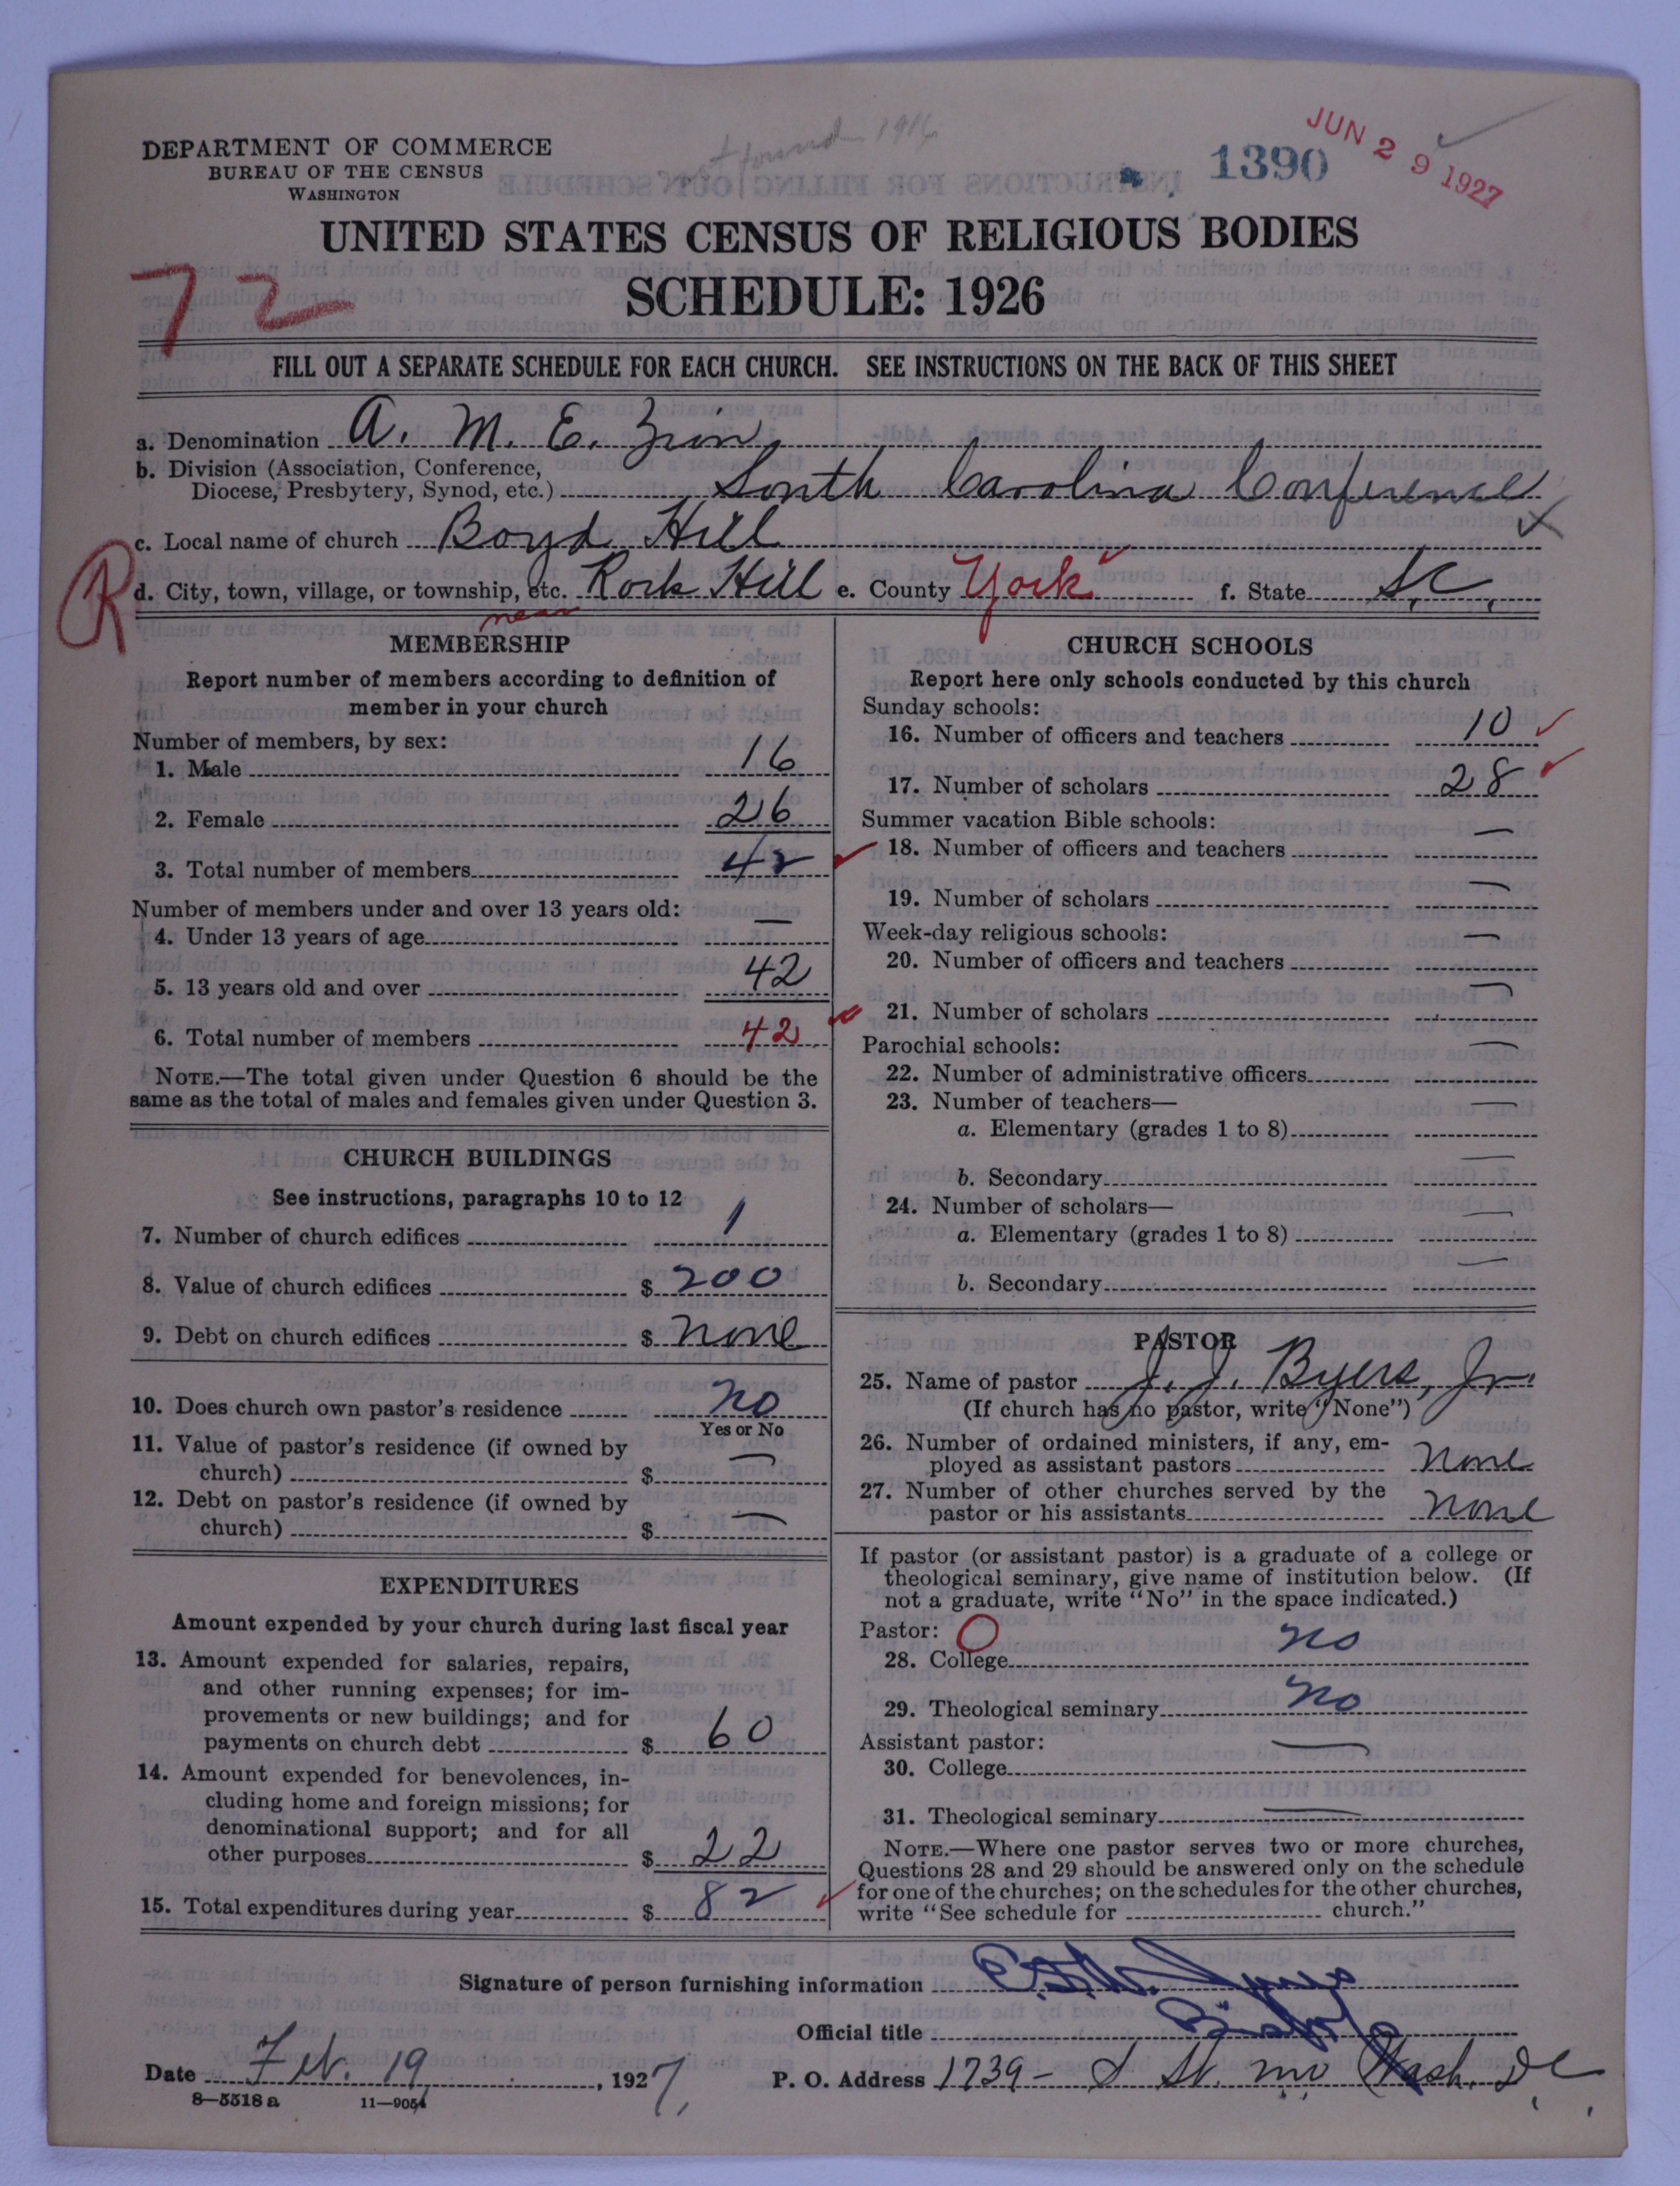 not found 1916
1390
JUN 29 1927
DEPARTMENT OF COMMERCE
BUREAU OF THE CENSUS
WASHINGTON
UNITED STATES CENSUS OF RELIGIOUS BODIES
SCHEDULE: 1926
72
FILL OUT A SEPARATE SCHEDULE FOR EACH CHURCH. SEE INSTRUCTIONS ON THE BACK OF THIS SHEET
a. Denomination A. M. E. Zion
b. Division (Association, Conference,
Diocese, Presbytery, Synod, etc.) South Carolina Conference
c. Local name of church Boyd Hill
R
d. City, town, village, or township, etc. Rock Hill e. County York f. State S.C.
near
MEMBERSHIP
Report number of members according to definition of
member in your church
Number of members, by sex:
1. Male 16
2. Female 26
3. Total number of members 42
Number of members under and over 13 years old:
4. Under 13 years of age —
5. 13 years old and over 42
6. Total number of members 42
NOTE.—The total given under Question 6 should be the
same as the total of males and females given under Question 3.
CHURCH BUILDINGS
See instructions, paragraphs 10 to 12
7. Number of church edifices 1
8. Value of church edifices $ 200
9. Debt on church edifices $ none
10. Does church own pastor's residence no
Yes or No
11. Value of pastor's residence (if owned by
church) $ —
12. Debt on pastor's residence (if owned by
church) $ —
EXPENDITURES
Amount expended by your church during last fiscal year
13. Amount expended for salaries, repairs,
and other running expenses; for im-
provements or new buildings; and for
payments on church debt $ 60
14. Amount expended for benevolences, in-
cluding home and foreign missions; for
denominational support; and for all
other purposes $ 22
15. Total expenditures during year $ 82
CHURCH SCHOOLS
Report here only schools conducted by this church
Sunday schools:
16. Number of officers and teachers 10
17. Number of scholars 28
Summer vacation Bible schools:
18. Number of officers and teachers —
19. Number of scholars —
Week-day religious schools:
20. Number of officers and teachers —
21. Number of scholars —
Parochial schools:
22. Number of administrative officers —
23. Number of teachers—
a. Elementary (grades 1 to 8) —
b. Secondary —
24. Number of scholars—
a. Elementary (grades 1 to 8) —
b. Secondary —
PASTOR
25. Name of pastor J. J. Byers, Jr.
(If church has no pastor, write "None")
26. Number of ordained ministers, if any, em-
ployed as assistant pastors None
27. Number of other churches served by the
pastor or his assistants none
If pastor (or assistant pastor) is a graduate of a college or
theological seminary, give name of institution below. (If
not a graduate, write "No" in the space indicated.)
Pastor: O
28. College no
29. Theological seminary no
Assistant pastor:
30. College —
31. Theological seminary —
NOTE.—Where one pastor serves two or more churches,
Questions 28 and 29 should be answered only on the schedule
for one of the churches; on the schedules for the other churches,
write "See schedule for church."
Signature of person furnishing information
Official title Bishop
Date Feb. 19, 1927, P. O. Address 1739- S St. NW Wash. DC
8—5518a 11—9051